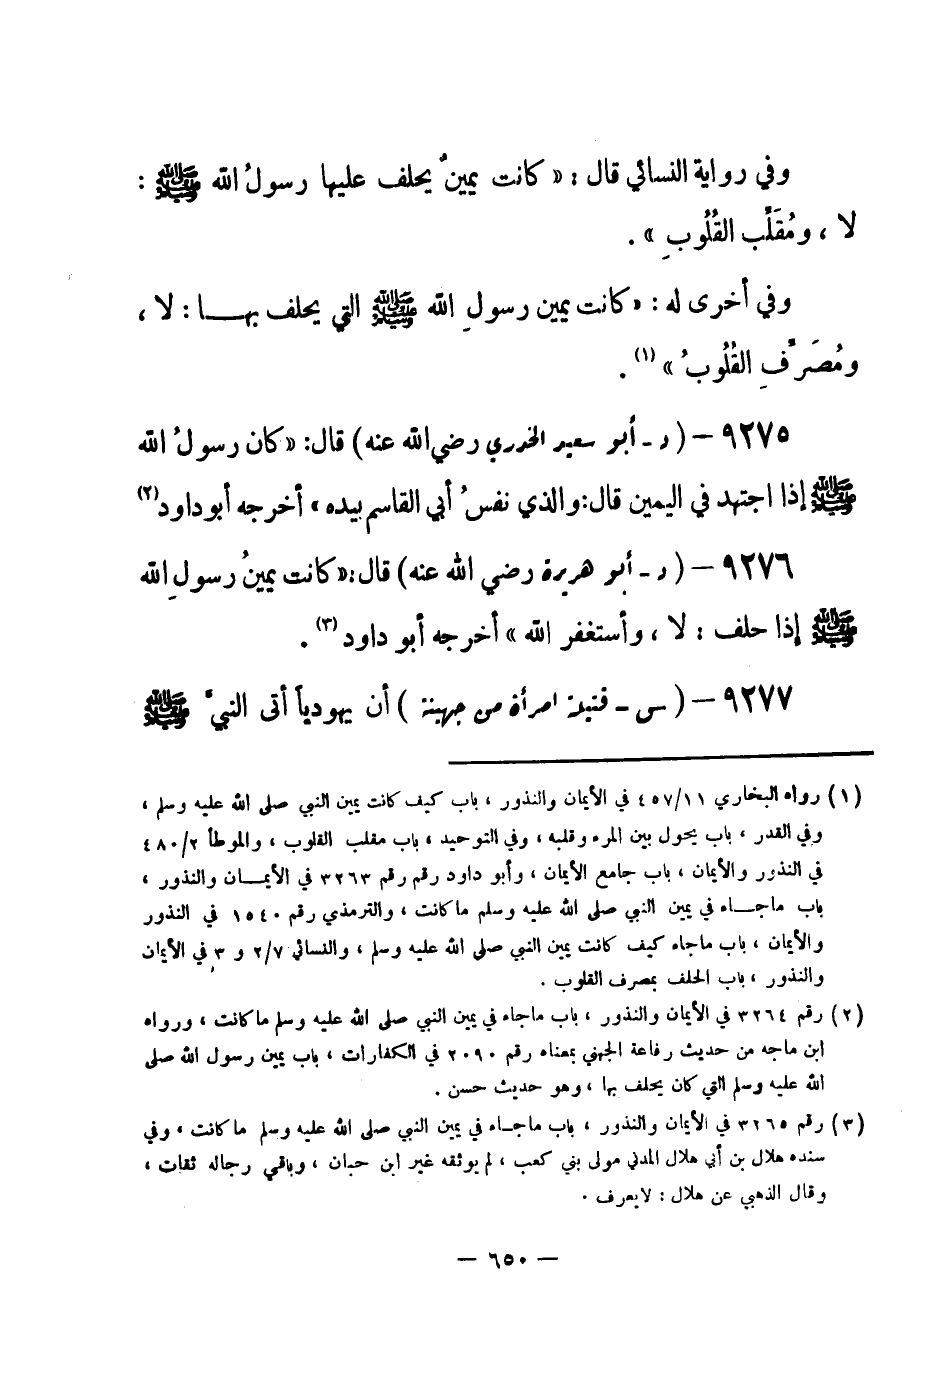 وفي رواية النسائي قال : « كانت يمينٌ يحلف عليها رسولُ الله ﷺ :
لا ، ومُقَلِّب القُلُوبِ » .
وفي أخرى له : « كانت يمين رسولِ الله ﷺ التي يحلف بهـــا : لا ،
ومُصَرِّفِ القُلُوبُ » (١) .
٩٢٧٥ – ( د ـ أبو سعيد الخدري رضي الله عنه ) قال : « كان رسولُ الله
ﷺ إذا اجتهد في اليمين قال : والذي نفسُ أبي القاسم بيده » أخرجه أبو داود (٢)
٩٢٧٦ – ( د ـ أبو هريرة رضي الله عنه ) قال : « كانت يمينُ رسولِ الله
ﷺ إذا حلف : لا ، وأستغفر الله » أخرجه أبو داود (٣) .
٩٢٧٧ – ( س ـ قتيلة امرأة من جهينة ) أن يهودياً أتى النبيَّ ﷺ
(١) رواه البخاري ١١/٤٥٧ في الأيمان والنذور ، باب كيف كانت يمين النبي صلى الله عليه وسلم ،
وفي القدر ، باب يحول بين المرء وقلبه ، وفي التوحيد ، باب مقلب القلوب ، والموطأ ٢/٤٨٠
في النذور والأيمان ، باب جامع الأيمان ، وأبو داود رقم رقم ٣٢٦٣ في الأيمــان والنذور ،
باب ماجــاء في يمين النبي صلى الله عليه وسلم ما كانت ، والترمذي رقم ١٥٤٠ في النذور
والأيمان ، باب ماجاء كيف كانت يمين النبي صلى الله عليه وسلم ، والنسائي ٢/٧ و ٣ في الأيمان
والنذور ، باب الحلف بمصرف القلوب .
(٢) رقم ٣٢٦٤ في الأيمان والنذور ، باب ماجاء في يمين النبي صلى الله عليه وسلم ما كانت ، ورواه
ابن ماجه من حديث رفاعة الجهني بمعناه رقم ٢٠٩٠ في الكفارات ، باب يمين رسول الله صلى
الله عليه وسلم التي كان يحلف بها ، وهو حديث حسن .
(٣) رقم ٣٢٦٥ في الأيمان والنذور ، باب ماجــاء في يمين النبي صلى الله عليه وسلم ما كانت ، وفي
سنده هلال بن أبي هلال المدني مولى بني كعب ، لم يوثقه غير ابن حبان ، وباقي رجاله ثقات ،
وقال الذهبي عن هلال : لا يعرف .
— ٦٥٠ —